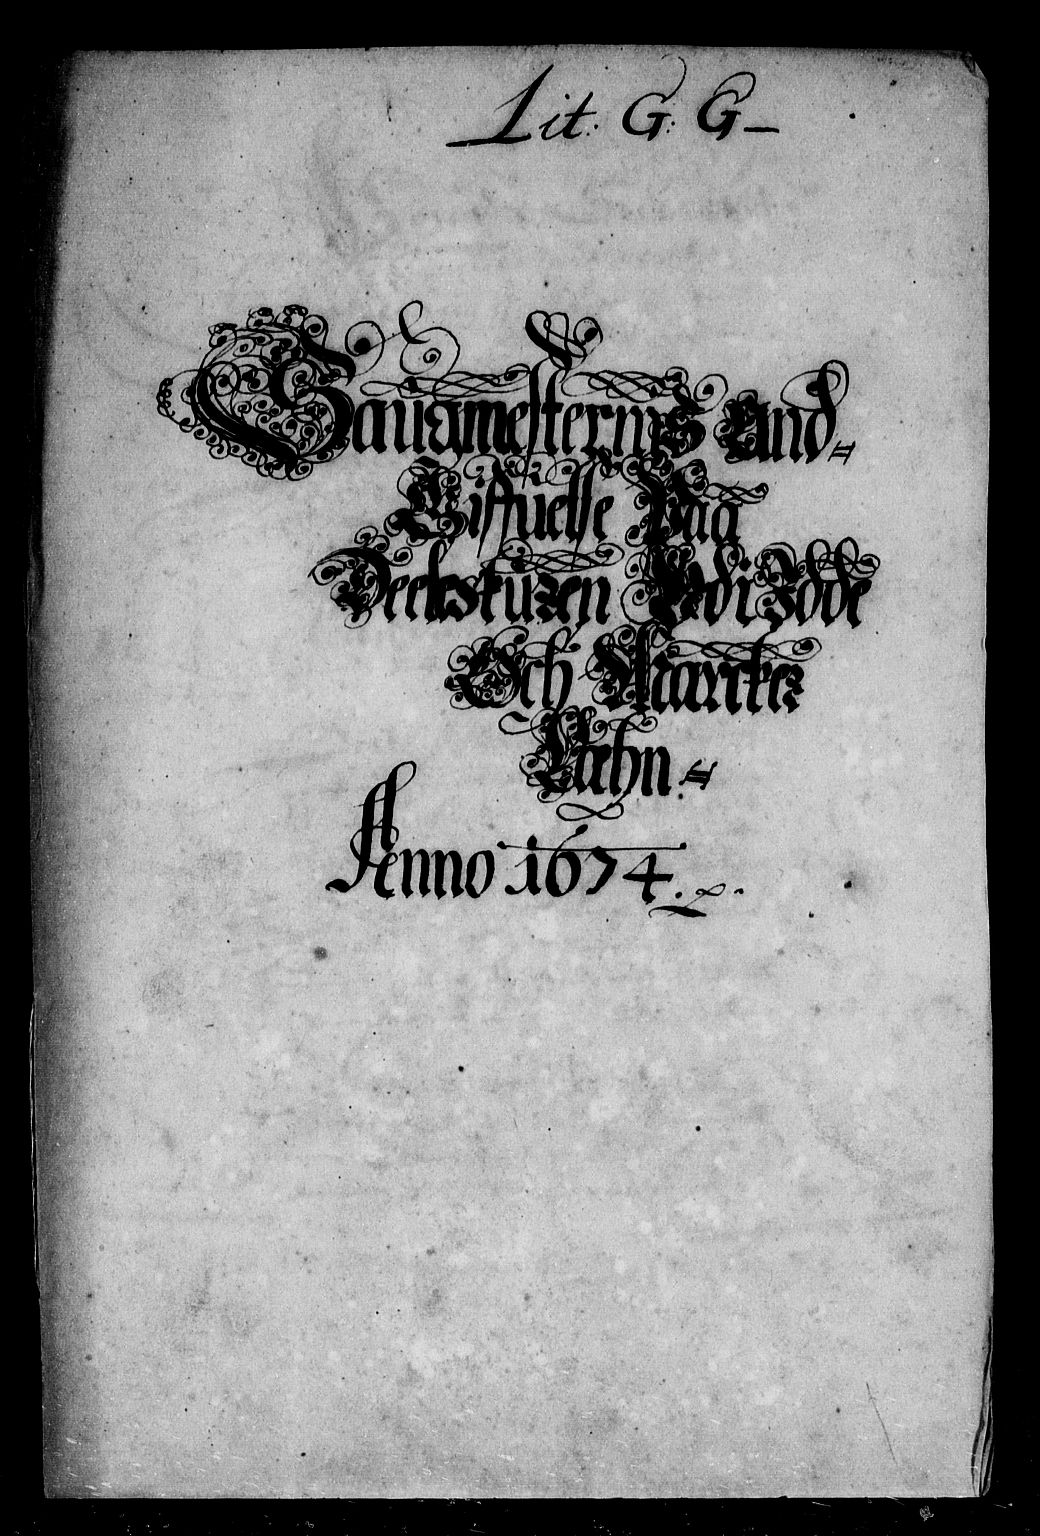 Lit: G: G
Saugmesternis And=
Giffuelse Paa
Deelsskuren Udi Idde
Och Marcker
Læhn =
Aenno 1674.